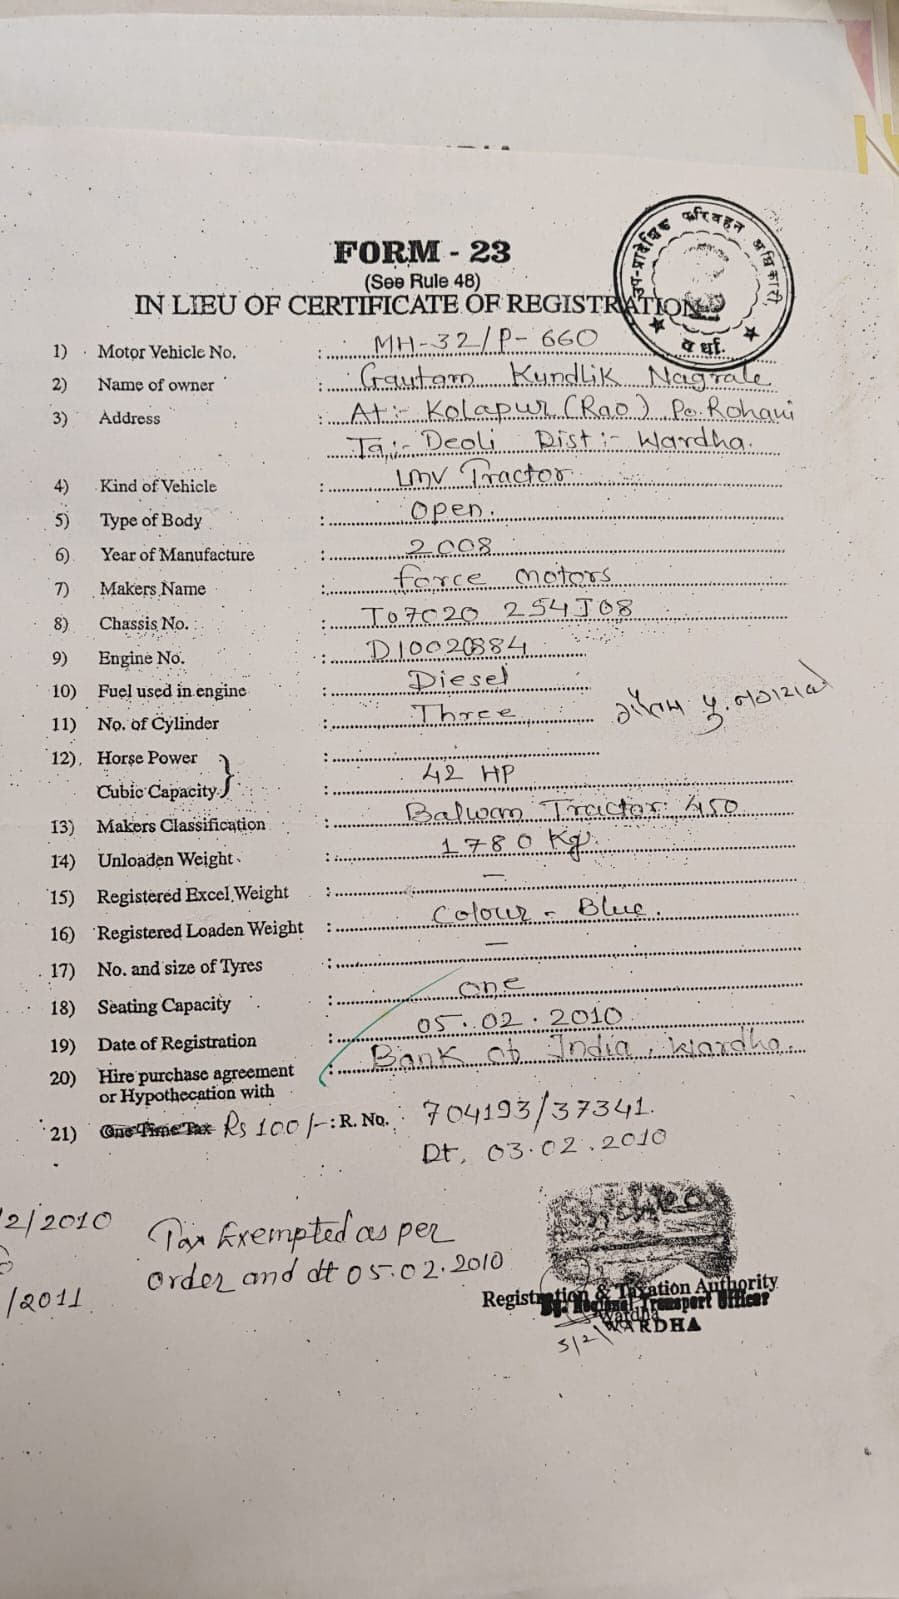 FORM - 23
(See Rule 48)
IN LIEU OF CERTIFICATE OF REGISTRATION
उप-प्रादेशिक परिवहन अधिकारी,
वर्धा.
1) Motor Vehicle No. : MH-32/P-660
2) Name of owner : Gautam Kundlik Nagrale
3) Address : At:- Kolapur (Rao) Po. Rohani
Ta:- Deoli Dist:- Wardha.
4) Kind of Vehicle : LMV Tractor
5) Type of Body : Open.
6) Year of Manufacture : 2008
7) Makers Name : force motors
8) Chassis No. : T07020 254J08
9) Engine No. : D10020884
10) Fuel used in engine : Diesel
11) No. of Cylinder : Three
12) Horse Power :
Cubic Capacity : 42 HP
13) Makers Classification : Balwan Tractor 450
14) Unloaden Weight : 1780 Kg.
15) Registered Excel Weight : —
16) Registered Loaden Weight : Colour - Blue.
17) No. and size of Tyres : —
18) Seating Capacity : One
19) Date of Registration : 05.02.2010
20) Hire purchase agreement : Bank of India, Wardha.
or Hypothecation with
21) One Time Tax Rs 100/- : R. No. : 704193/37341.
Dt. 03.02.2010
2/2010
/2011
Tax Exempted as per
order and dt 05.02.2010
Registration & Taxation Authority
Dy. Regional Transport Officer
Wardha
WARDHA